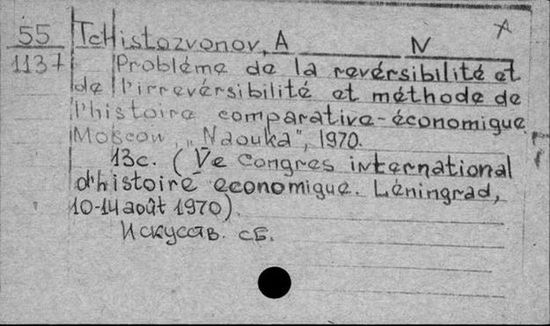 55 TcHistozvonov, A N
1137 Probléme de la revérsibilité et
de l'irrevérsibilité et méthode de
l'histoire comparative-économique
Moscow, „Naouka", 1970.
13c. (Ve Congres international
d'histoire economigue. Léningrad,
10-14 août 1970).
Искусств. сб.